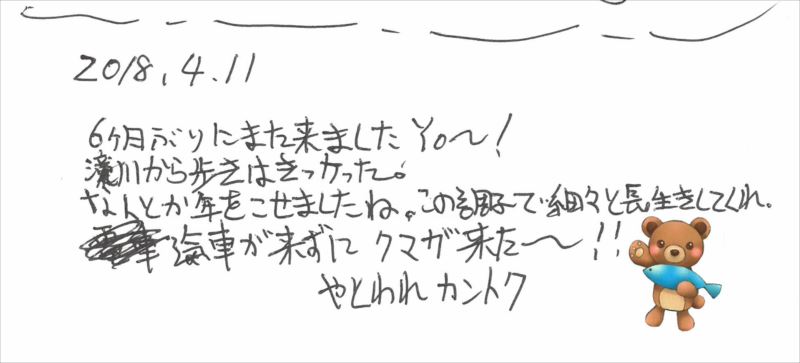 2018.4.11
6ヶ月ぶりにまた来ました Yo〜!
滝川から歩きはきつかった。
なんとか年をこせましたね。この調子で細々と長生きしてくれ。
汽車が来ずに クマが来た〜!!
やとわれ カントク